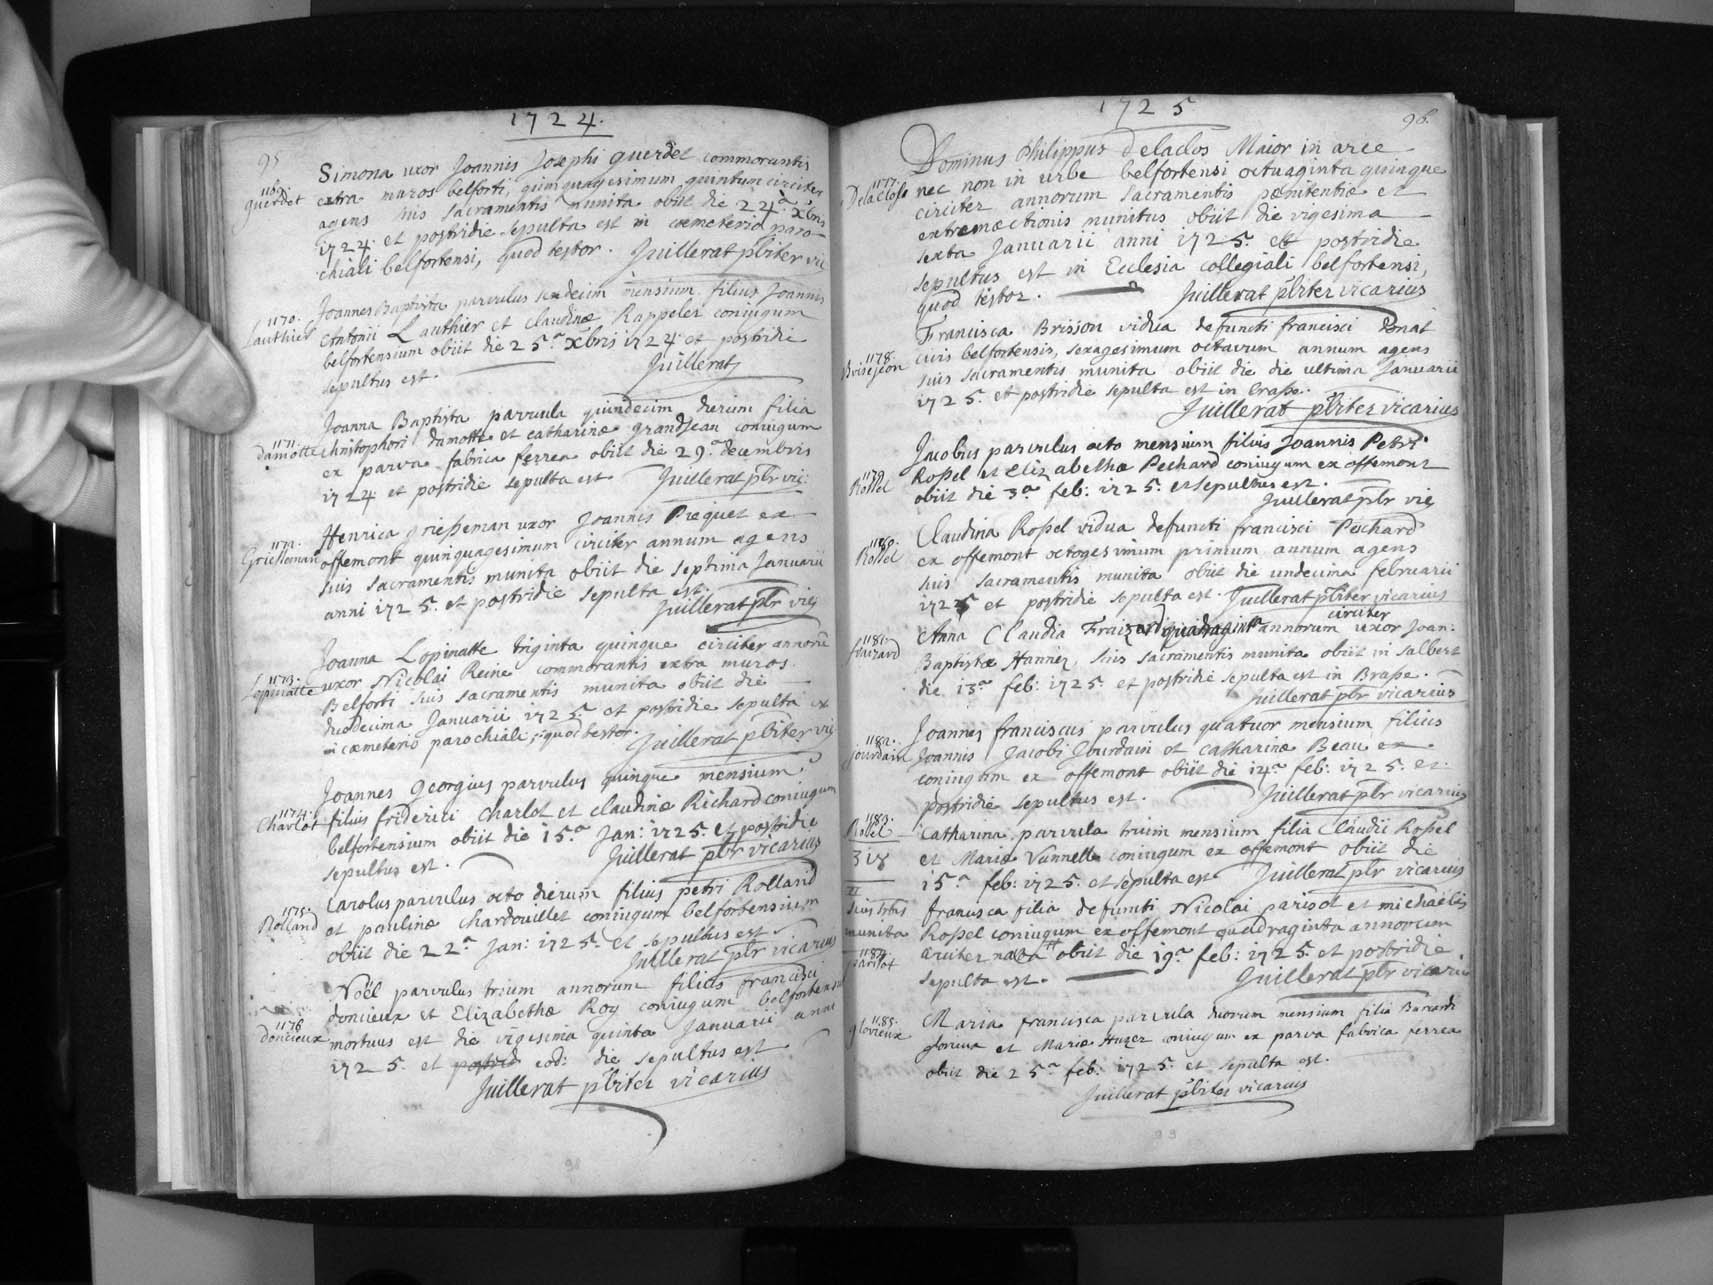 1724.
95
Simona uxor Joannis Josephi guerdet commorantis
1169.
guerdet
extra muros belforti, quinquagesimum quintum circiter
agens suis sacramentis munita obiit die 24.a Xbris
1724. et postridie sepulta est in coemeterio paro-
chiali belfortensi, quod testor. Juillerat pbiter vic
1170.
Lauthier
Joannes Baptista parvulus sexdecim mensium filius Joannis
Antonii Lauthier et claudinæ Rappeler coniugum
belfortensium obiit die 25.a Xbris 1724. et postridie
sepultus est. Juillerat
Joanna Baptista parvula quindecim dierum filia
1171.
damotte
christophori damotte et catharinæ grandJean coniugum
ex parva fabrica ferrea obiit die 29.a decembris
1724 et postridie sepulta est Juillerat pbr vic:
Henrica grießeman uxor Joannis Piequet ex
1172.
Griesseman
offemont quinquagesimum circiter annum agens
suis sacramentis munita obiit die septima Januarii
anni 1725. et postridie sepulta est. Juillerat pbr vic
Joanna Lopinatte triginta quinque circiter annorū
1173.
Lopinatte
uxor Nicolai Reine commorantis extra muros
Belforti suis sacramentis munita obiit die
duodecima Januarii 1725. et postridie sepulta est
in cæmeterio parochiali, quod testor. Juillerat pbiter vic
Joannes georgius parvulus quinque mensium
1174.
Charlot
filius friderici charlot et claudinæ Richard coniugum
belfortensium obiit die 15.a Jan: 1725. et postridie
sepultus est. Juillerat pbr vicarius
Carolus parvulus octo dierum filius petri Rolland
1175.
Rolland
et paulinæ chardouillet coniugum belfortensium
obiit die 22.a Jan: 1725. et sepultus est
Juillerat pbr vicarius
Noël parvulus trium annorum filius francisci
1176
doncieux
doncieux et Elizabethæ Roy coniugum belfortensium
mortuus est die vigesima quinta Januarii anni
1725. et postrid eod: die sepultus est
Juillerat pbiter vicarius
98
1725
96.
Dominus Philippus delaclos Maior in arce
1177.
Delaclose
nec non in urbe belfortensi octuaginta quinque
circiter annorum sacramentis pœnitentiæ et
extremæctionis munitus obiit die vigesima
sexta Januarii anni 1725. et postridie
sepultus est in Ecclesia collegiali belfortensi,
quod testor. Juillerat pbiter vicarius
Francisca Brisson vidua defuncti francisci Donat
1178.
Brisejeon
civis belfortensis, sexagesimum octavum annum agens
suis sacramentis munita obiit die die ultima Januarii
1725. et postridie sepulta est in braße.
Juillerat pbiter vicarius
Jacobus parvulus octo mensium filius Joannis Petri
1179.
Rossel
Roßel et Elizabethæ Pechard coniugum ex offemont
obiit die 3.a feb: 1725. et sepultus est.
Juillerat pbr vic
Claudina Roßel vidua defuncti francisci Pechard
1180.
Rossel
ex offemont octogesimum primum annum agens
suis sacramentis munita obiit die undecima februarii
1725 et postridie sepulta est. Juillerat pbiter vicarius
circiter
Anna Claudia Fraizard quadraginta annorum uxor Joan:
1181.
fraizard
Baptistæ Hannier, suis sacramentis munita obiit in salbert
die 13.a feb: 1725. et postridie sepulta est in Braße.
Juillerat pbr vicarius
Joannes franciscus parvulus quatuor mensium filius
1182.
jourdain
Joannis Jacobi Jourdain et catharinæ Beau ex
coniugum ex offemont obiit die 14.a feb: 1725. et
postridie sepultus est. Juillerat pbr vicarius
1183.
Rossel
Catharina parvula trium mensium filia Claudii Roßel
et Mariæ Vannelle coniugum ex offemont obiit die
15.a feb: 1725. et sepulta est Juillerat pbr vicarius
suis sctis
munita
francisca filia defuncti Nicolai parisot et michaëlis
Roßel coniugum ex offemont quadraginta annorum
1184.
parisot
circiter nata obiit die 19.a feb: 1725. et postridie
sepulta est. Juillerat pbr vicarius
1185.
glorieux
Maria francisca parvula duorum mensium filia Burcardi
glorieux et Mariæ Huzer coniugum ex parva fabrica ferrea
obiit die 25.a feb: 1725. et sepulta est.
Juillerat pbiter vicarius